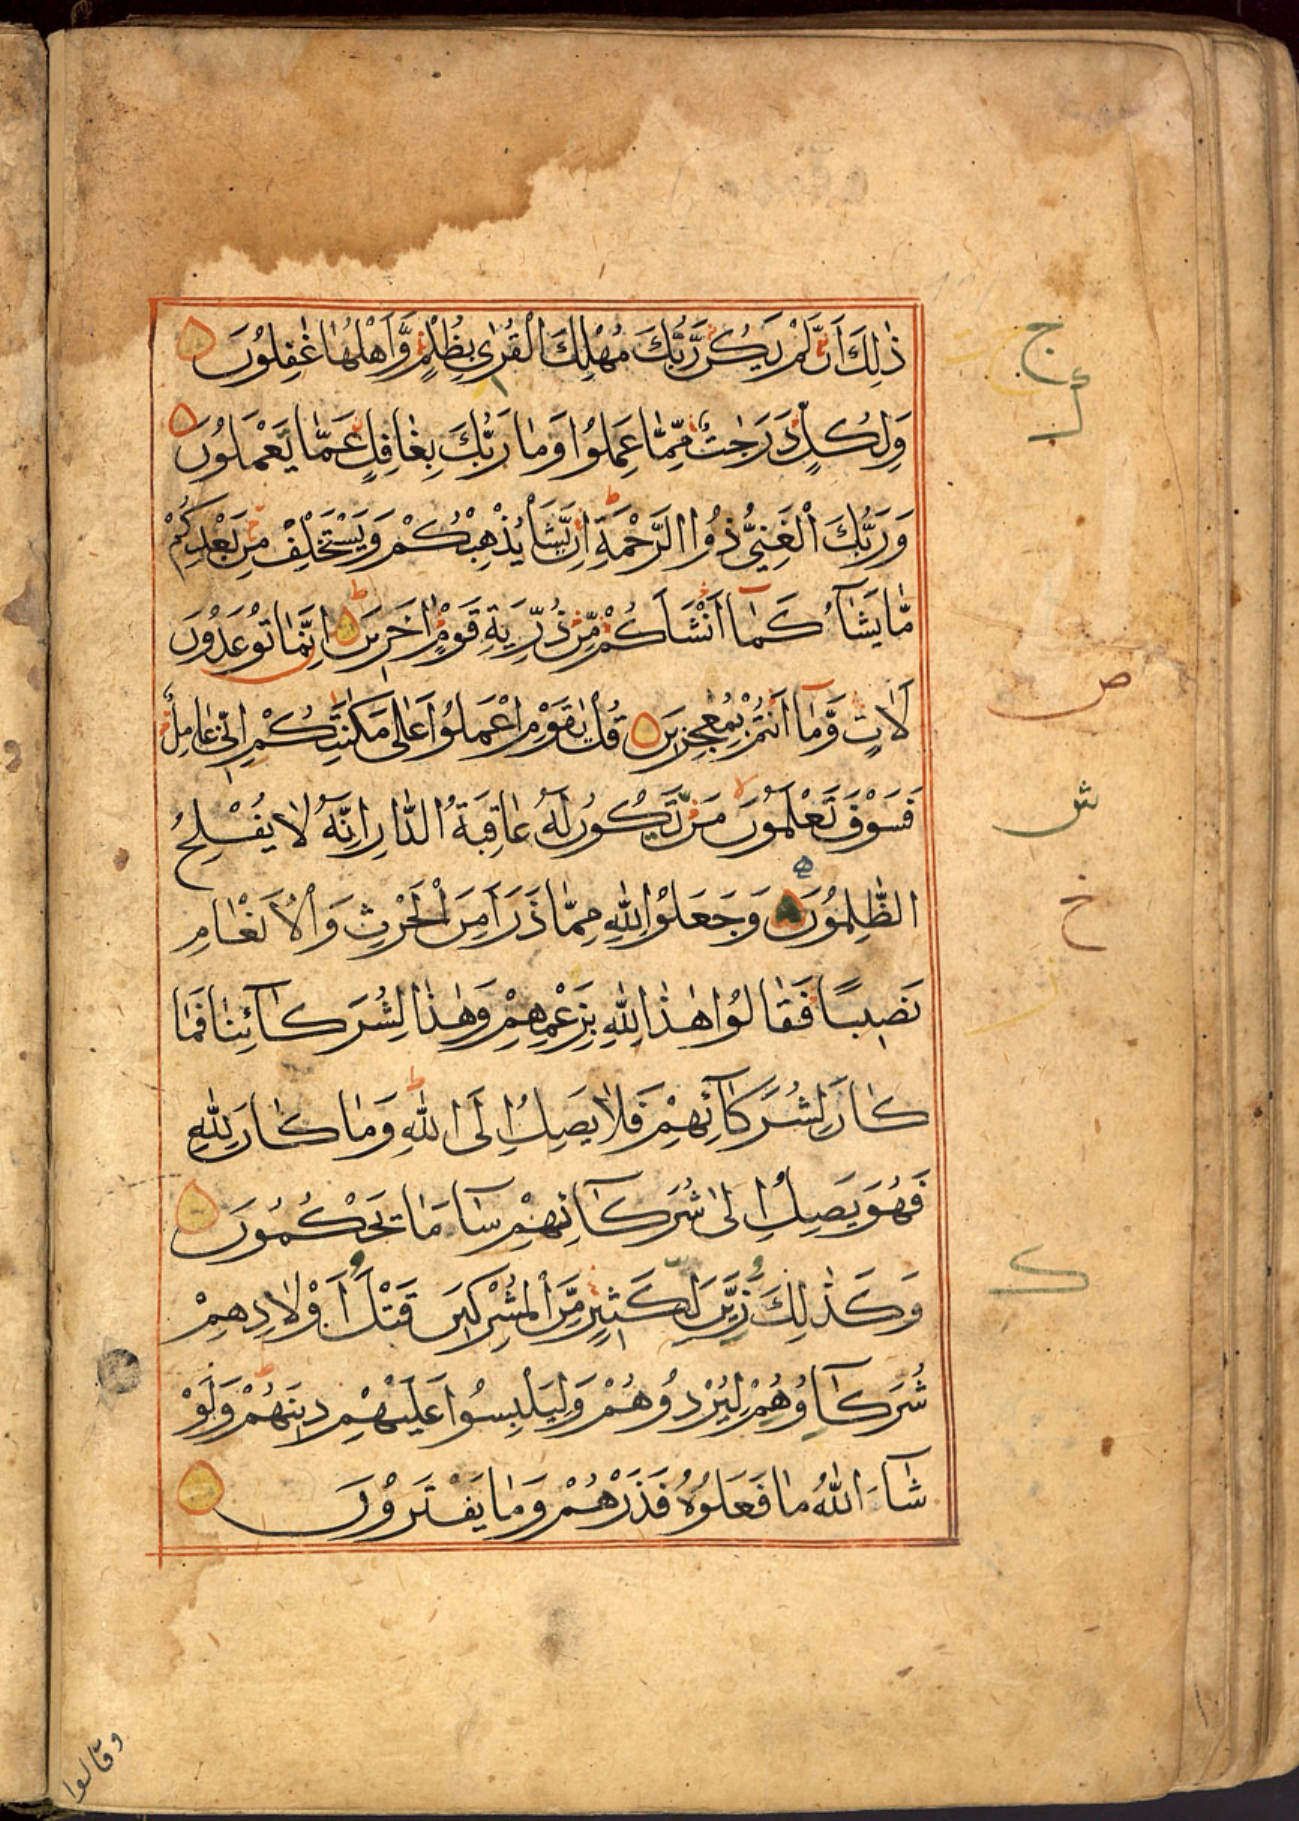 ذٰلِكَ اَنْ لَّمْ يَكُنْ رَّبُّكَ مُهْلِكَ الْقُرٰى بِظُلْمٍ وَّاَهْلُهَا غٰفِلُوْنَ
وَلِكُلٍّ دَرَجٰتٌ مِّمَّا عَمِلُوْا وَمَا رَبُّكَ بِغَافِلٍ عَمَّا يَعْمَلُوْنَ
وَرَبُّكَ الْغَنِيُّ ذُوا الرَّحْمَةِ اِنْ يَّشَأْ يُذْهِبْكُمْ وَيَسْتَخْلِفْ مِنْ بَعْدِكُمْ
مَّا يَشَآءُ كَمَآ اَنْشَاَكُمْ مِّنْ ذُرِّيَةِ قَوْمٍ اٰخَرِيْنَ اِنَّمَا تُوْعَدُوْنَ
لَاٰتٍ وَّمَآ اَنْتُمْ بِمُعْجِزِيْنَ قُلْ يٰقَوْمِ اعْمَلُوْا عَلٰى مَكَانَتِكُمْ اِنِّيْ عَامِلٌ
فَسَوْفَ تَعْلَمُوْنَ مَنْ تَكُوْنُ لَهٗ عَاقِبَةُ الدَّارِ اِنَّهٗ لَا يُفْلِحُ
الظّٰلِمُوْنَ وَجَعَلُوْا لِلّٰهِ مِمَّا ذَرَاَ مِنَ الْحَرْثِ وَالْاَنْعَامِ
نَصِيْبًا فَقَالُوْا هٰذَا لِلّٰهِ بِزَعْمِهِمْ وَهٰذَا لِشُرَكَآئِنَا فَمَا
كَانَ لِشُرَكَآئِهِمْ فَلَا يَصِلُ اِلَى اللّٰهِ وَمَا كَانَ لِلّٰهِ
فَهُوَ يَصِلُ اِلٰى شُرَكَآئِهِمْ سَآءَ مَا يَحْكُمُوْنَ
وَكَذٰلِكَ زَيَّنَ لِكَثِيْرٍ مِّنَ الْمُشْرِكِيْنَ قَتْلَ اَوْلَادِهِمْ
شُرَكَآؤُهُمْ لِيُرْدُوْهُمْ وَلِيَلْبِسُوْا عَلَيْهِمْ دِيْنَهُمْ وَلَوْ
شَآءَ اللّٰهُ مَا فَعَلُوْهُ فَذَرْهُمْ وَمَا يَفْتَرُوْنَ
وقالوا